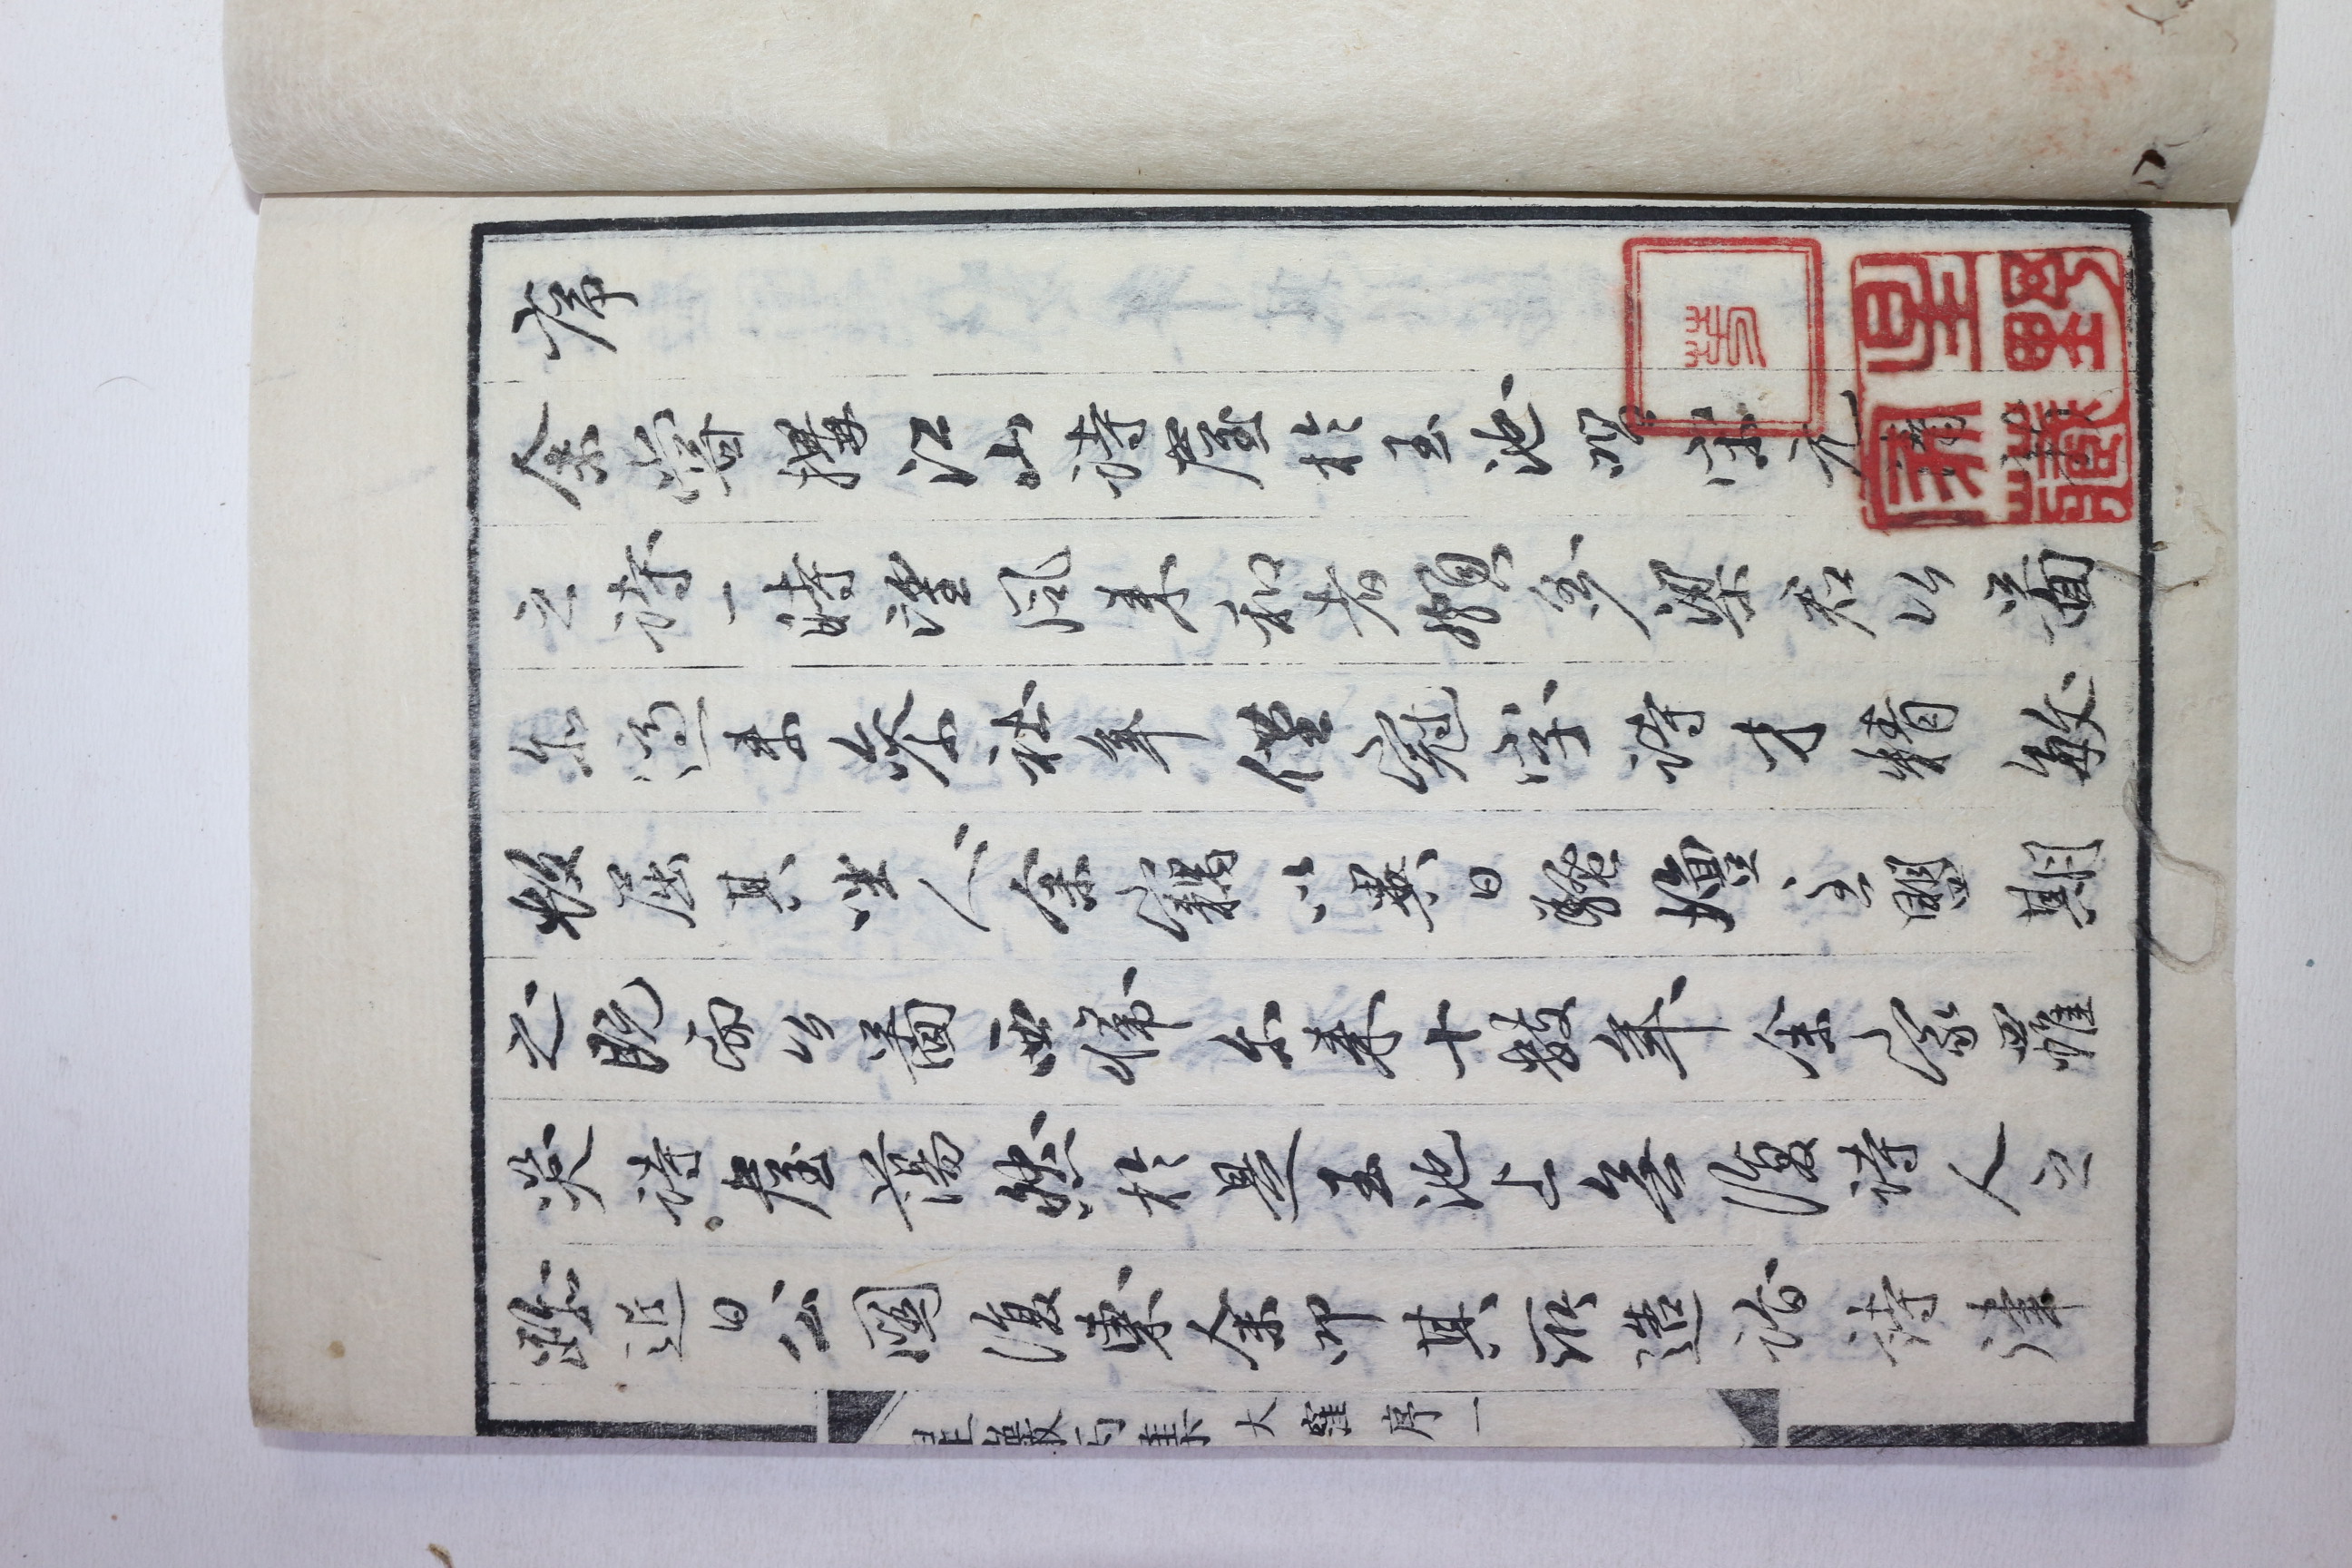 序
余嘗搆江山詩屋於玉池唱宋元清新
之詩一時望風來和者頗多梁君公圖
亦適來參社年僅冠字詩才精敏
故屈其坐人余竊以異日騷壇主盟期
之既而公圖西歸尓來十數年余家罹
災詩屋蕩然於是玉池上無復詩人之
跡近日公圖復東余叩其所造詣詩律
星巖丙集 大窪序 一
星野家藏